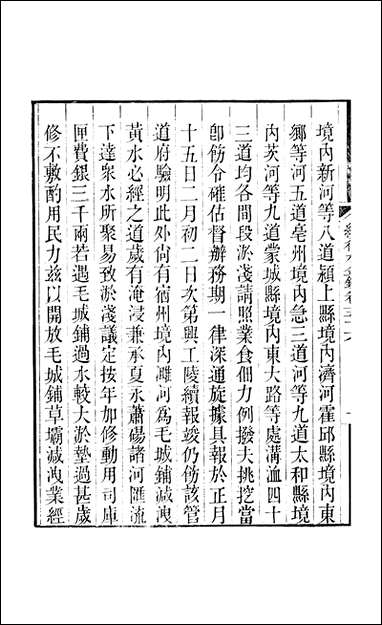 境內新河等八道潁上縣境內濟河霍邱縣境內東
鄉等河五道亳州境內急三道河等九道太和縣境
內茨河等九道蒙城縣境內東大路等處溝洫四十
三道均各間段淤淺請照業食佃力例撥夫挑挖當
卽飭令確估督辦務期一律深通旋據具報於正月
十五日二月初一二日次第興工陵續報竣仍飭該管
道府驗明此外尙有宿州境內濉河為毛城鋪減洩
黃水必經之道歲有淹浸兼承夏永蕭碭諸河匯流
下達衆水所聚易致淤淺議定按年加修動用司庫
匣費銀三千兩若遇毛城鋪過水較大淤墊過甚歲
修不敷酌用民力兹以開放毛城鋪草壩減洩業經